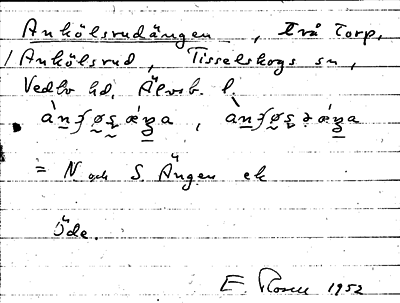 Ankölsrudängen, två torp,
/Ankölsrud, Tisselskogs sn,
Vedbo hd, Älvsb. l.
= N och S. Ängen ek
Öde.
E. Rosell 1952